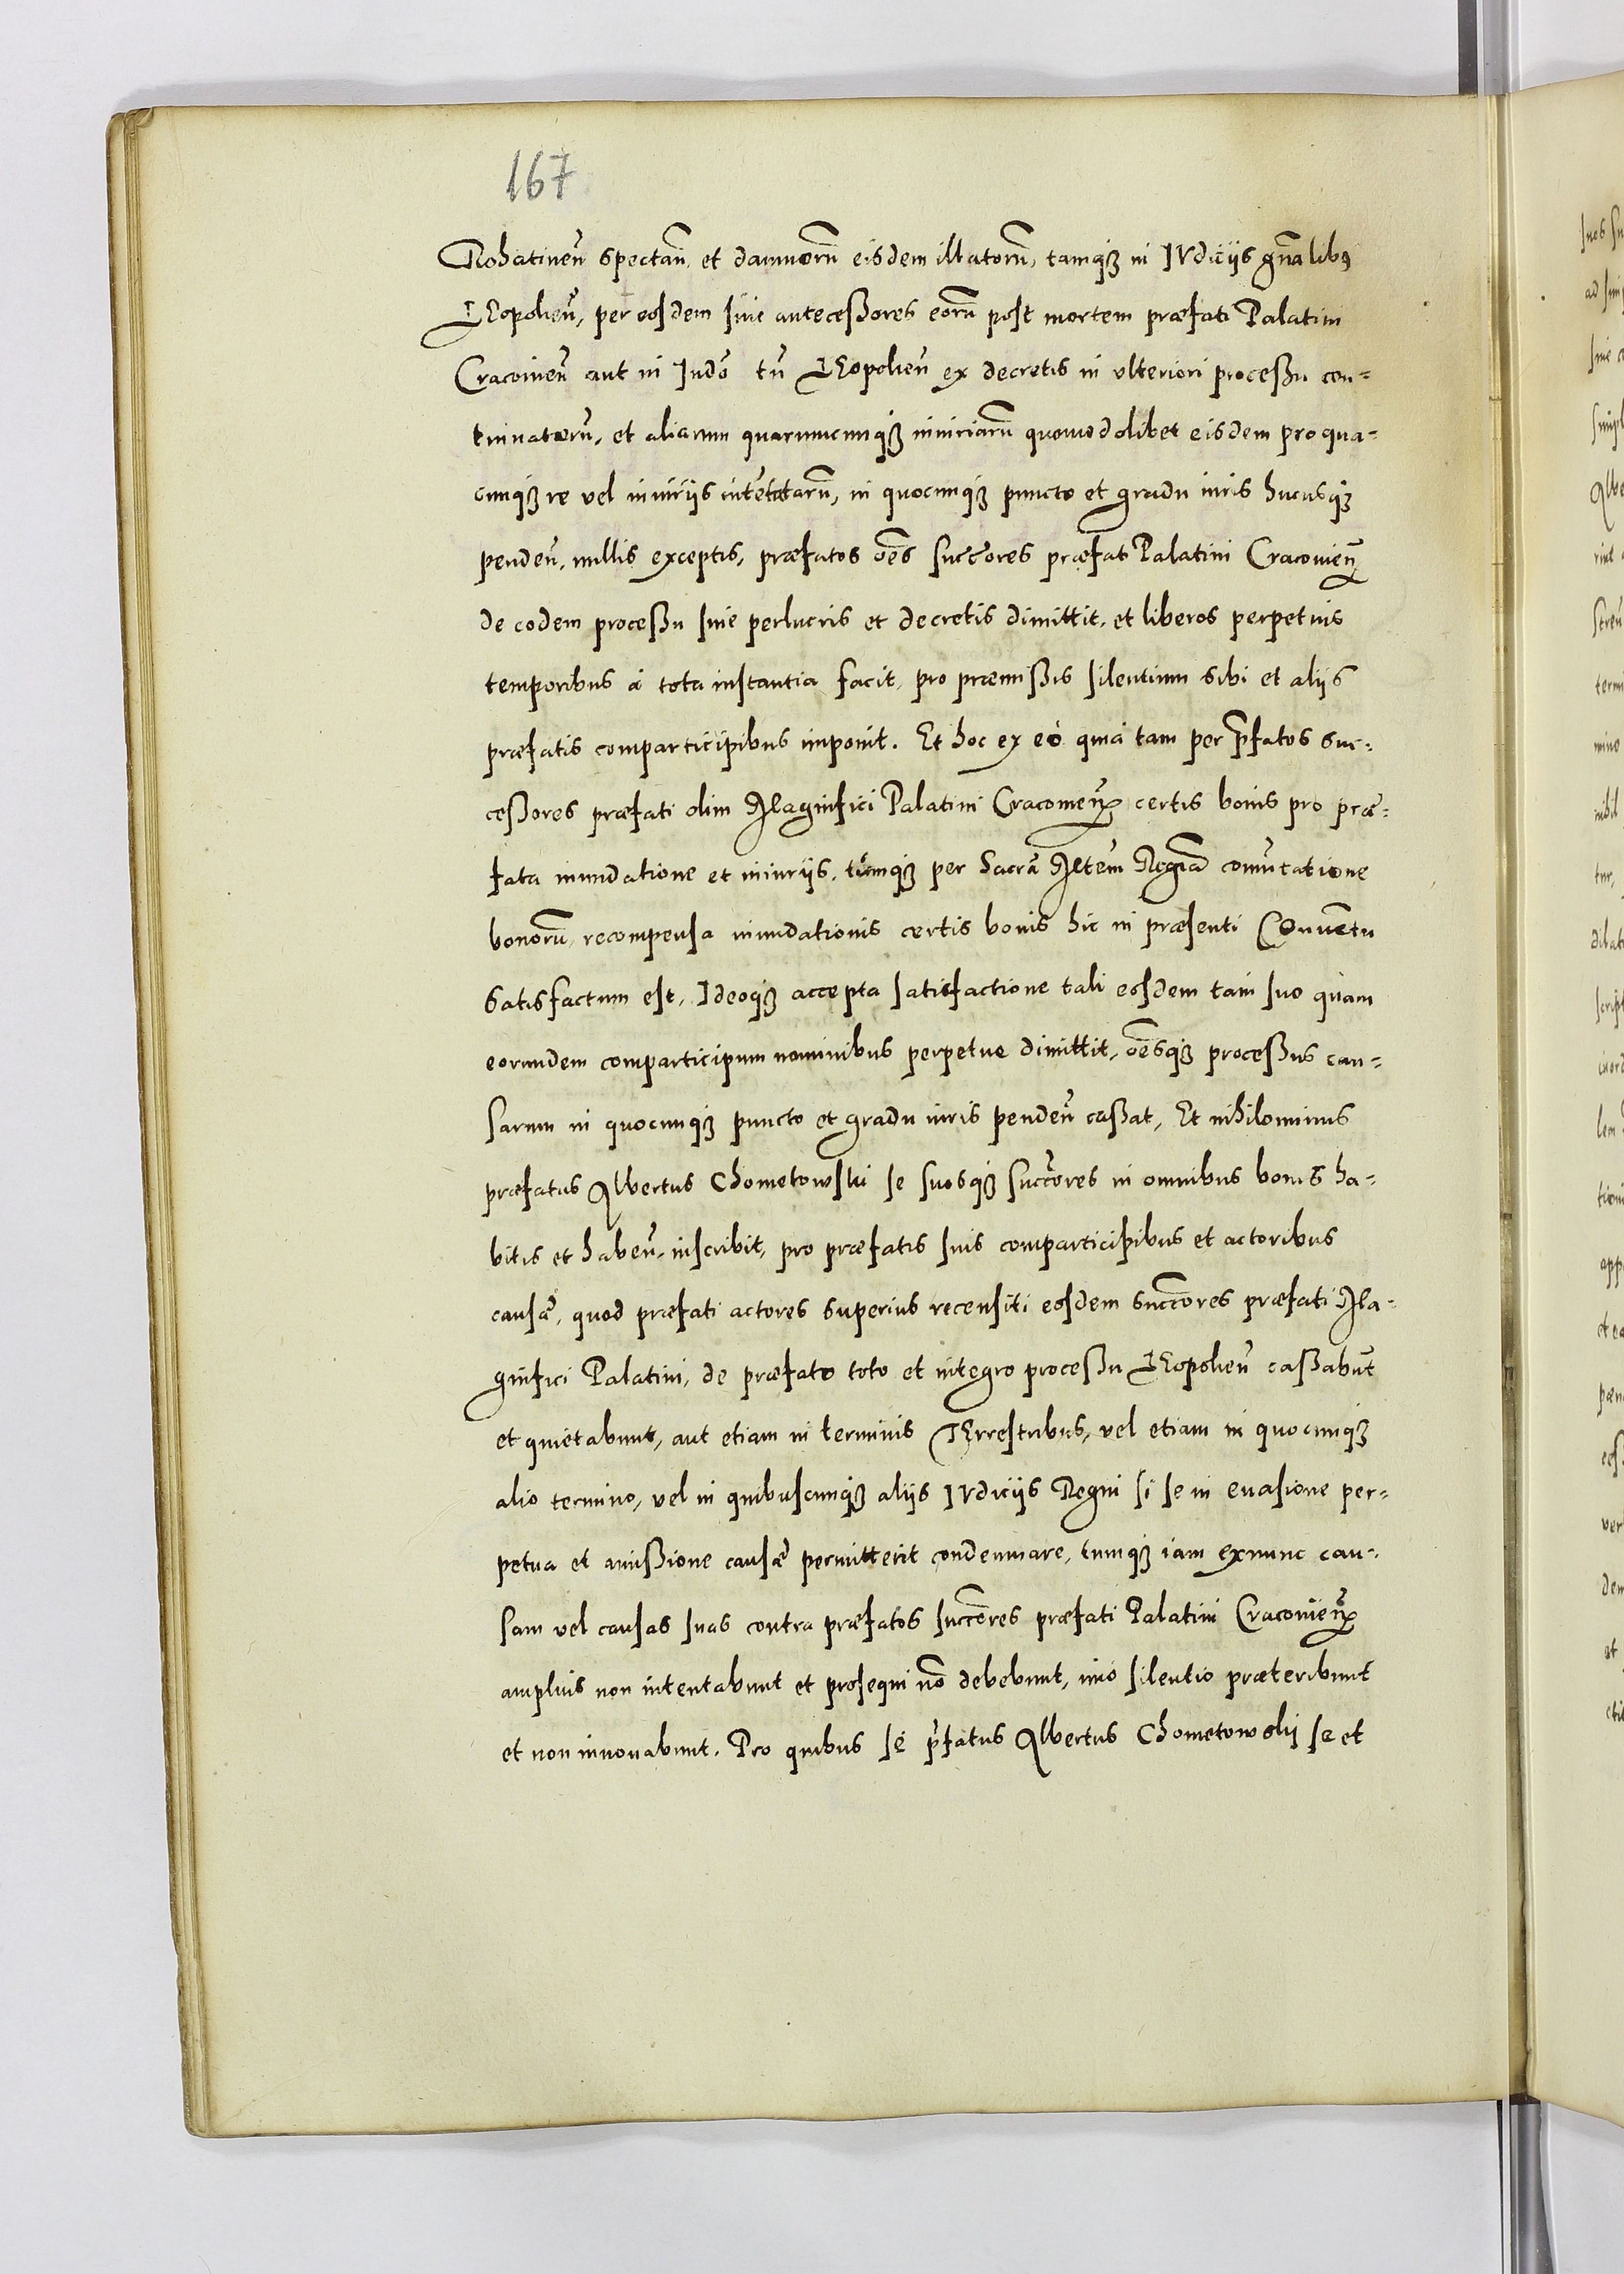 167
Rohatineñ spectañ, et damnorũ eisdem illatorũ, tamq3 in IVdicijs gñalib9
LEopolieñ, per eosdem siue antecessores eorũ post mortem præfati Palatini
Cracouieñ aut in Iudõ tñ LEopolieñ ex decretis in vlteriori processu con-
tinuatorũ, et aliarum quarumcumq3 iniuriarũ quomodolibet eisdem pro qua-
cumq3 re vel iniurijs intentatarũ, in quocumq3 puncto et gradu iuris hucusq3
pendeñ, nullis exceptis, præfatos oẽs succores præfati Palatini Cracouieñ
de eodem processu siue perlucris et decretis dimittit, et liberos perpetuis
temporibus à tota instantia facit, pro præmissis silentium sibi et alijs
præfatis comparticipibus imponit. Et hoc ex eò quià tam per p̃fatos suc-
cessores præfati olim Magnifici Palatini Cracouieñ certis bonis pro præ-
fata inundatione et iniurijs, tũmq3 per Sacrã Mtem Regiã comũtatione
bonorũ, recompensa inundationis certis bonis hic in præsenti COnuentu
satisfactum est, Ideoq3 accepta satisfactione tali eosdem tam suo quàm
eorundem comparticipum nominibus perpetue dimittit, oẽsq3 processus cau-
sarum in quocumq3 puncto et gradu iuris pendeñ cassat, Et nihilominus
præfatus Albertus Chometowski se suosq3 succores in omnibus bonis ha-
bitis et habeñ, inscribit, pro præfatis suis comparticipibus et actoribus
causæ, quod præfati actores superius recensiti eosdem succores præfati Ma-
gnifici Palatini, de præfato toto et integro processu LEopolieñ cassabũt
et quietabunt, aut etiam in terminis TErrestribus, vel etiam in quocumq3
alio termino, vel in quibuscumq3 alijs IVdicijs Regni si se in euasione per-
petua et amissione causæ permitterit condemnare, tumq3 iam exnunc cau-
sam vel causas suas contra præfatos succores præfati Palatini Cracouieñ
amplius non intentabunt et prosequi nõ debebunt, imò silentio præteribunt
et non innouabunt. Pro quibus sè p̃fatus Albertus Chometowskij se et